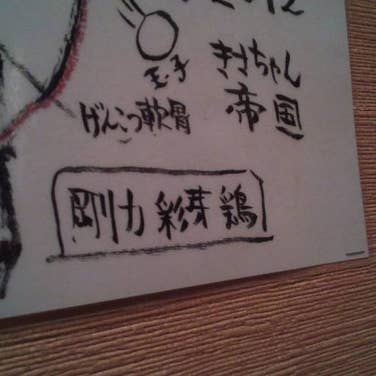 玉子
げんこつ軟骨
ききちゃん
帝国
剛力彩芽鶏